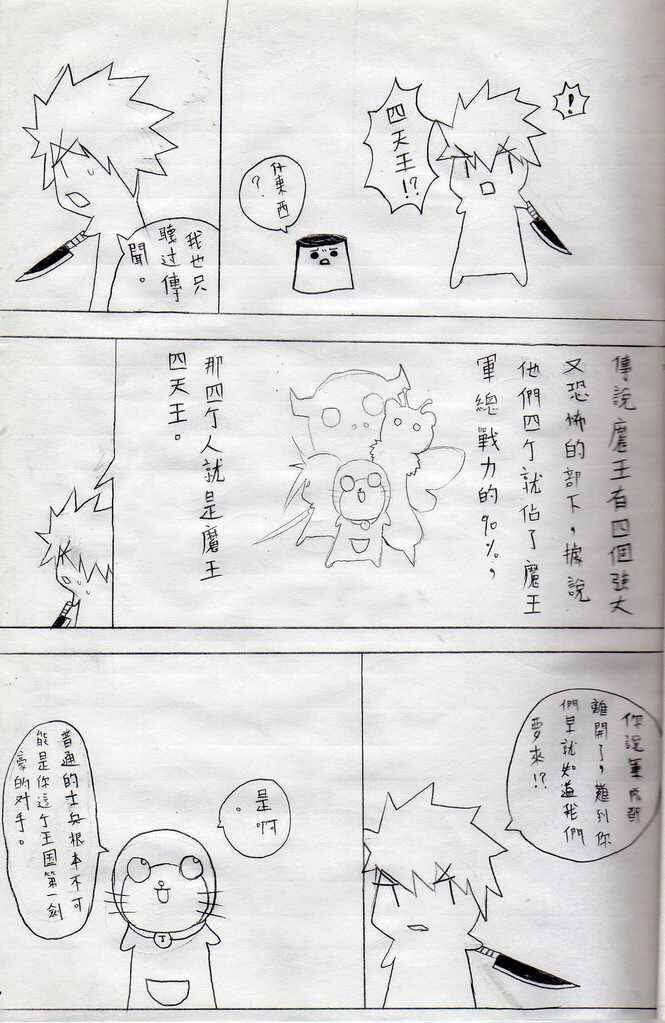 !
四天王!?
什東西
?
我也只
聽过傳
聞。
傳說魔王有四個強大
又恐怖的部下，據說
他們四个就佔了魔王
軍總戰力的90%，
那四个人就是魔王
四天王。
你說軍隊都
離開了，難到你
們早就知道我們
要來!?
是啊
。
J
普通的士兵根本不可
能是你這个王国第一劍
豪的对手。